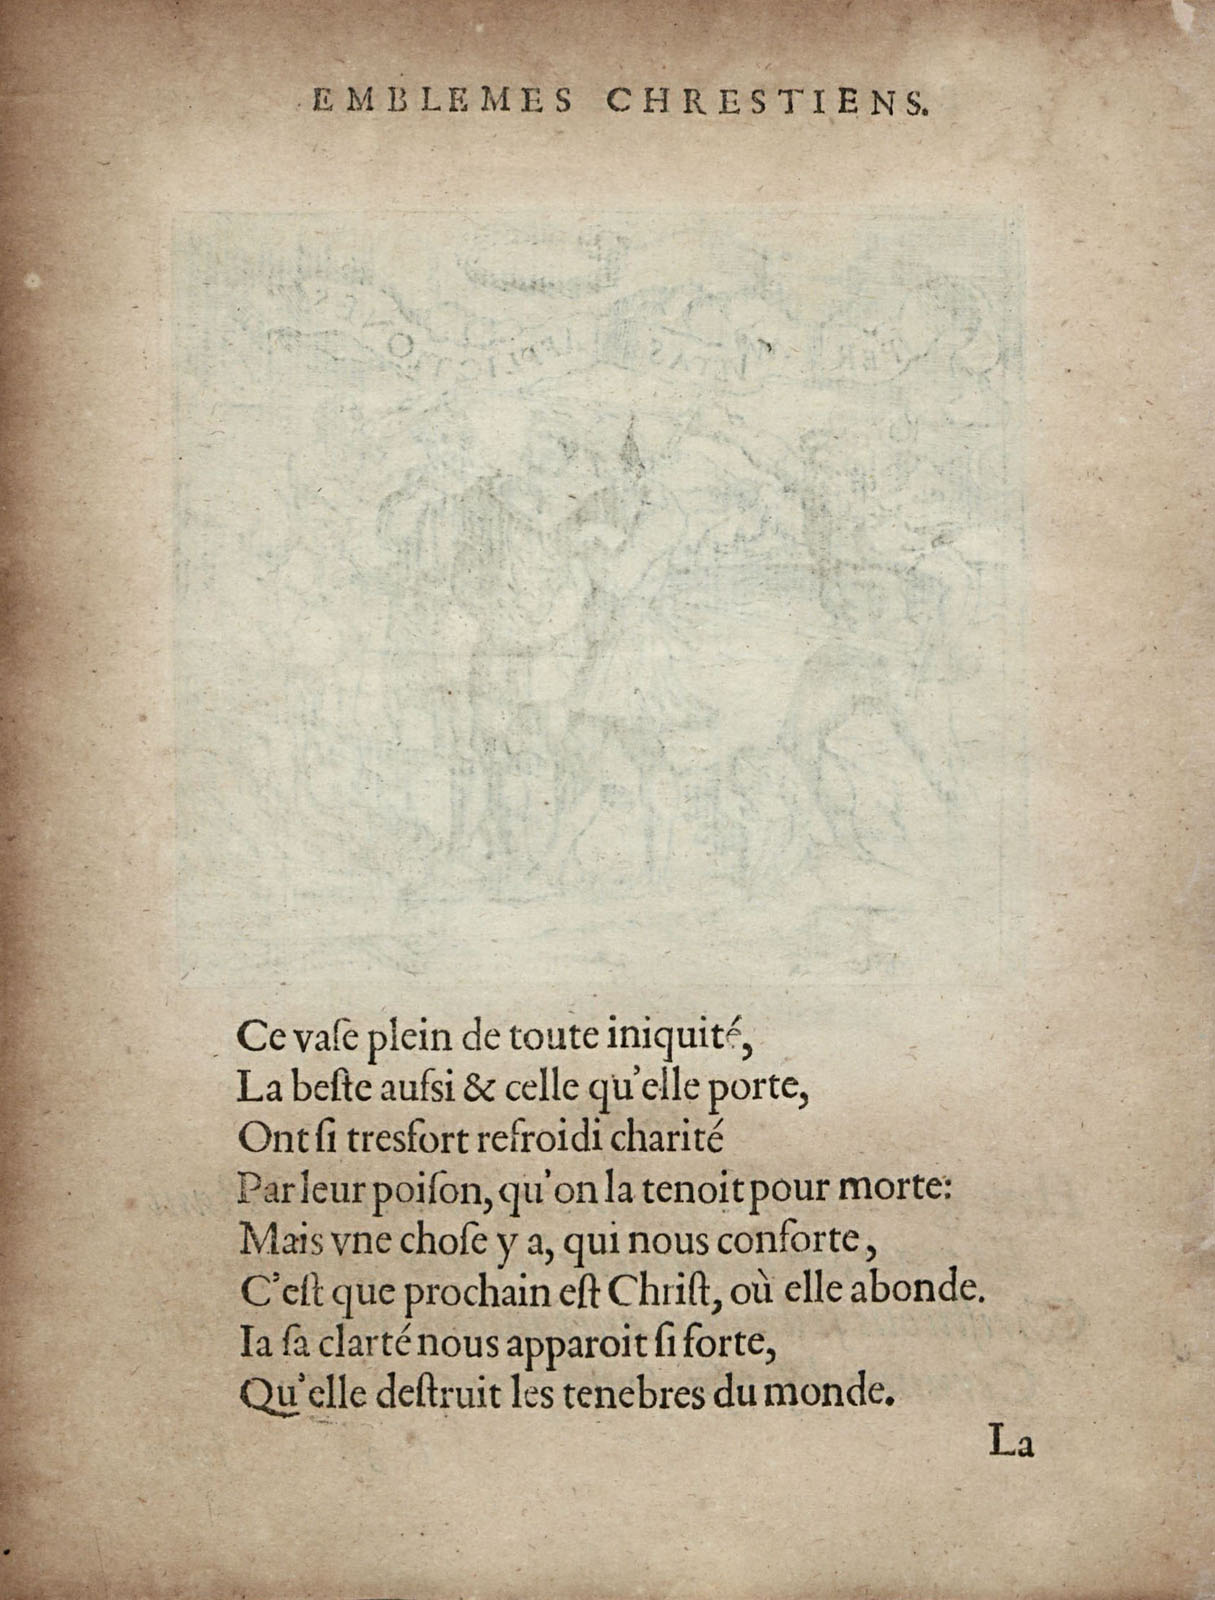 EMBLEMES CHRESTIENS.
Ce vaſe plein de toute iniquité,
La beſte auſsi & celle qu'elle porte,
Ont ſi tresfort refroidi charité
Par leur poiſon, qu'on la tenoit pour morte:
Mais vne choſe y a, qui nous conforte,
C'eſt que prochain eſt Chriſt, où elle abonde.
Ia ſa clarté nous apparoit ſi forte,
Qu'elle deſtruit les tenebres du monde.
La